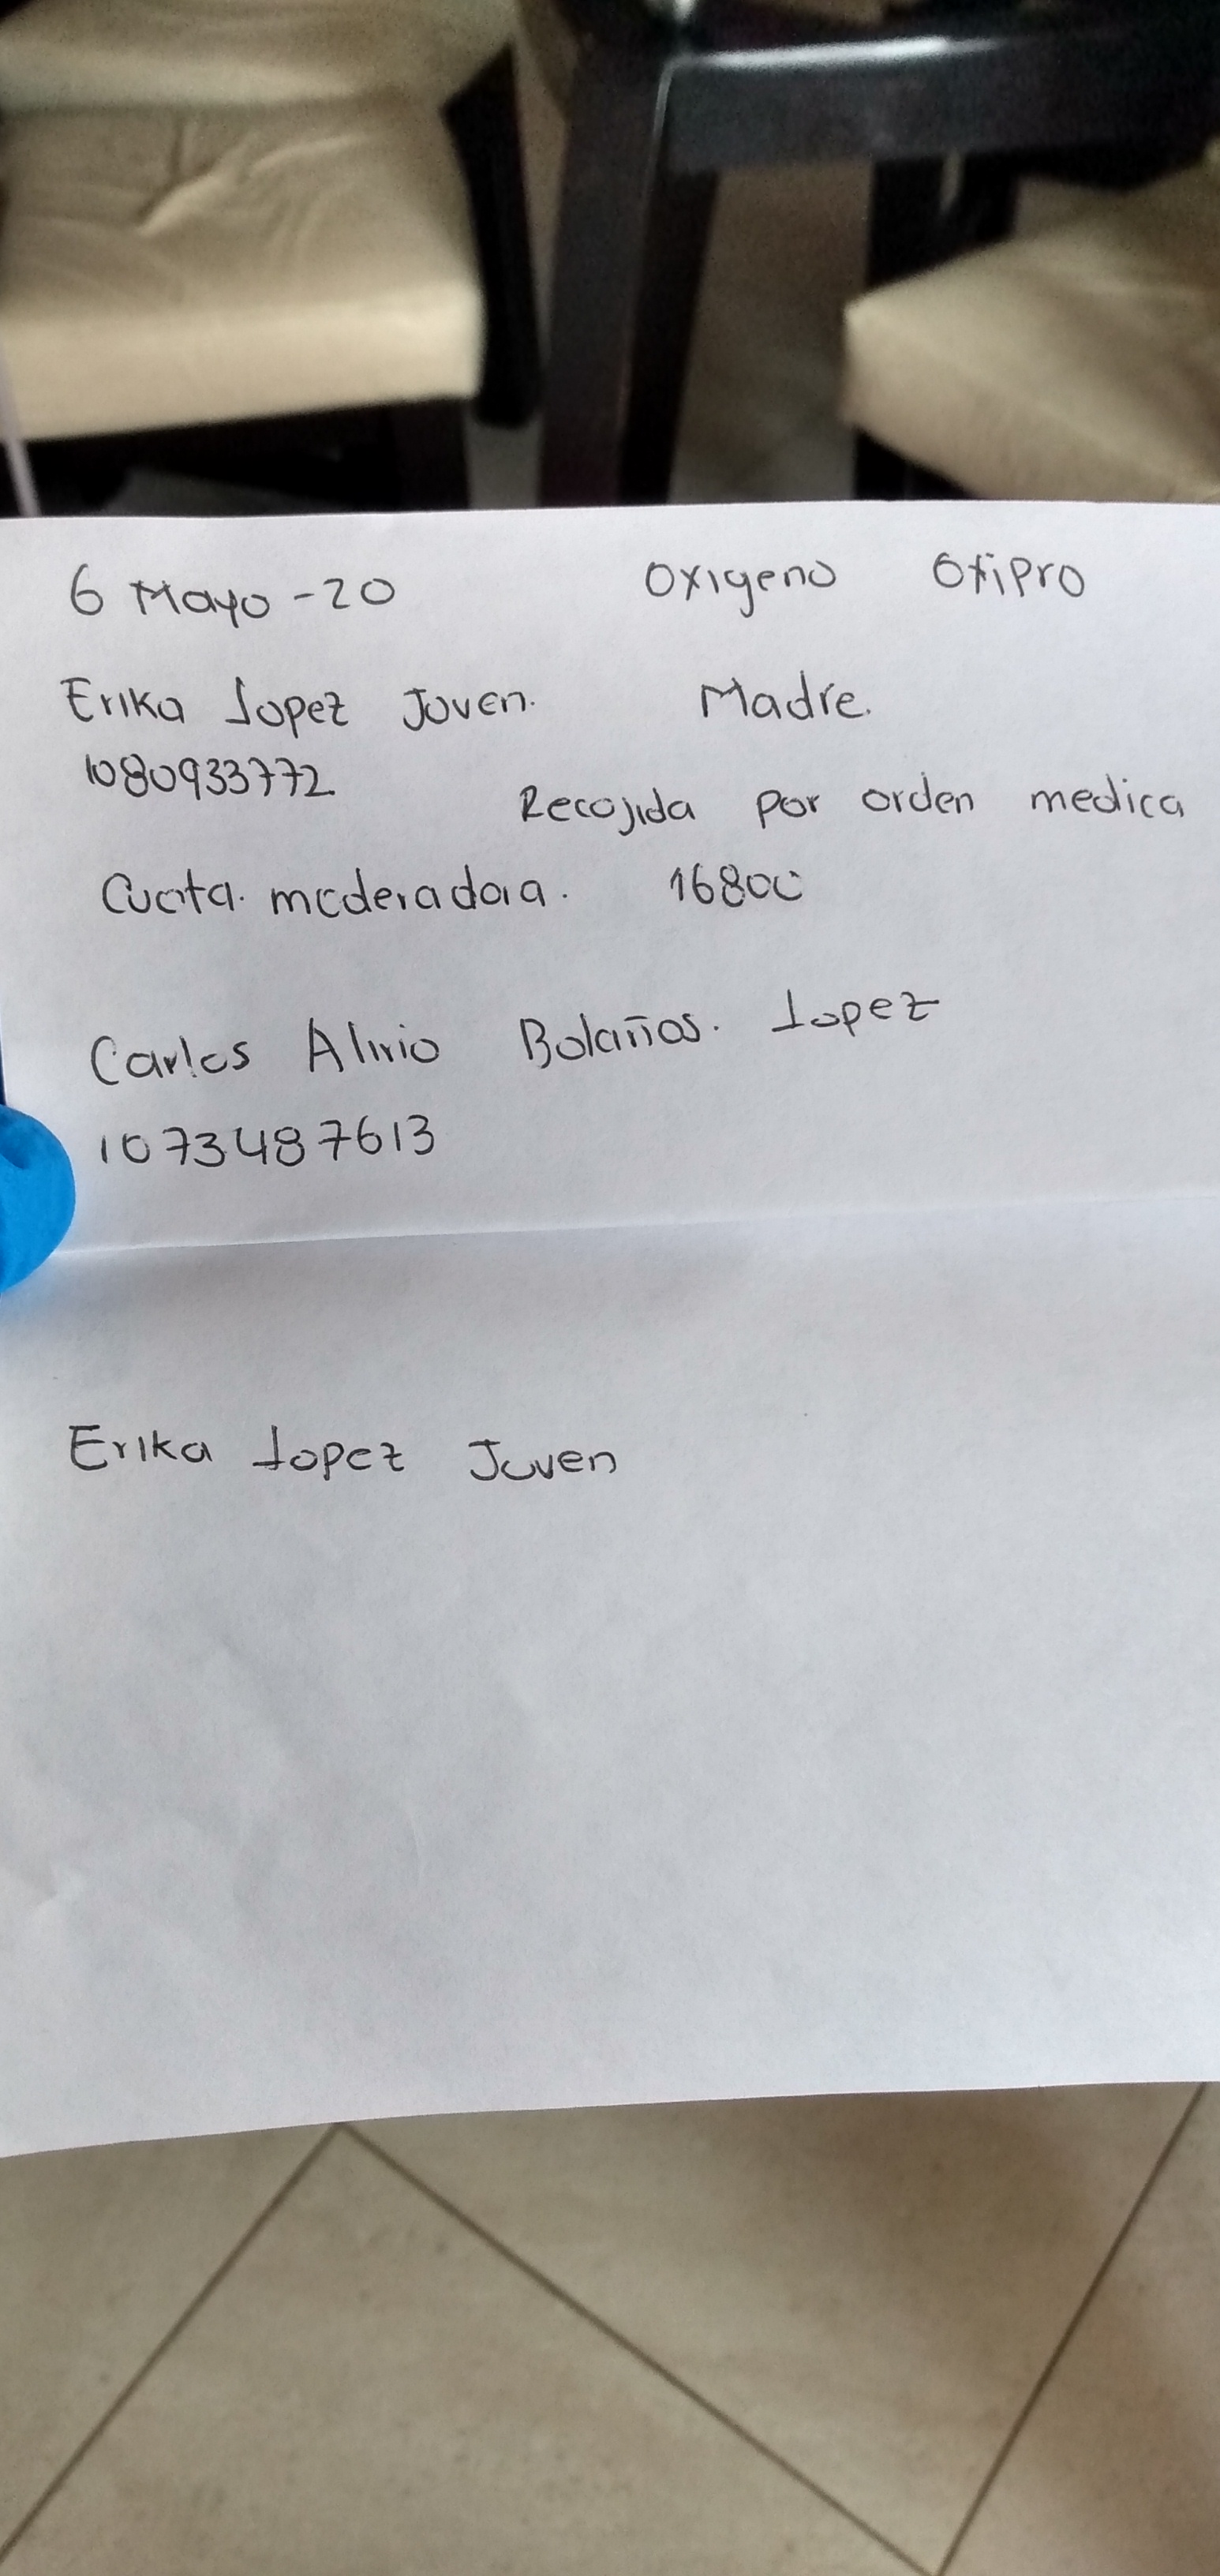 6 Mayo - 20 Oxigeno Oxipro
Erika Lopez Joven. Madre.
1080933772
Recojida por orden medica
Cuota. moderadora. 16800
Carlos Alirio Bolaños. Lopez
1073487613
Erika Lopez Joven